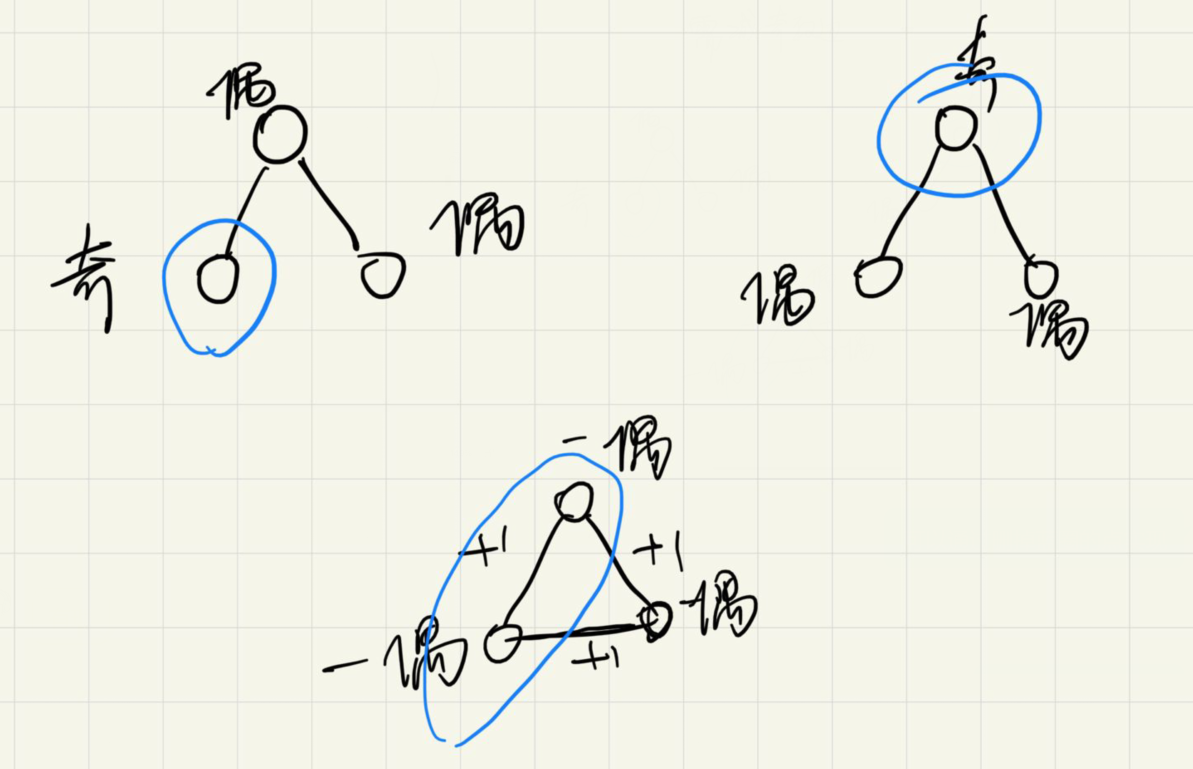 偶
奇
偶
奇
偶
偶
-偶
+1
+1
-偶
-偶
+1